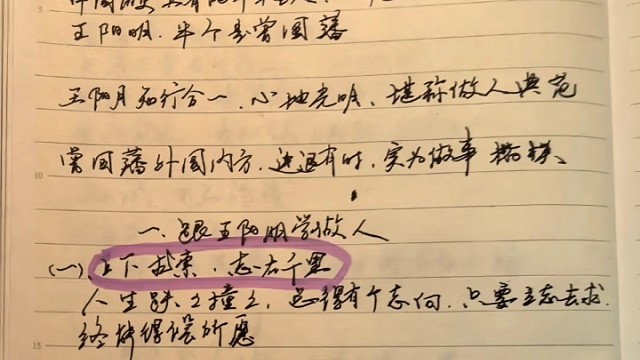 中国历史只有两个半圣人
王阳明.半个是曾国藩
王阳明知行合一、心地光明、堪称做人典范
10
曾国藩外圆内方,进退有时,实为做事楷模、
一、跟王阳明学做人
(一)、上下求索,志在千里
人生跌々撞々,总得有个志向,只要立志去求
15
终将得偿所愿